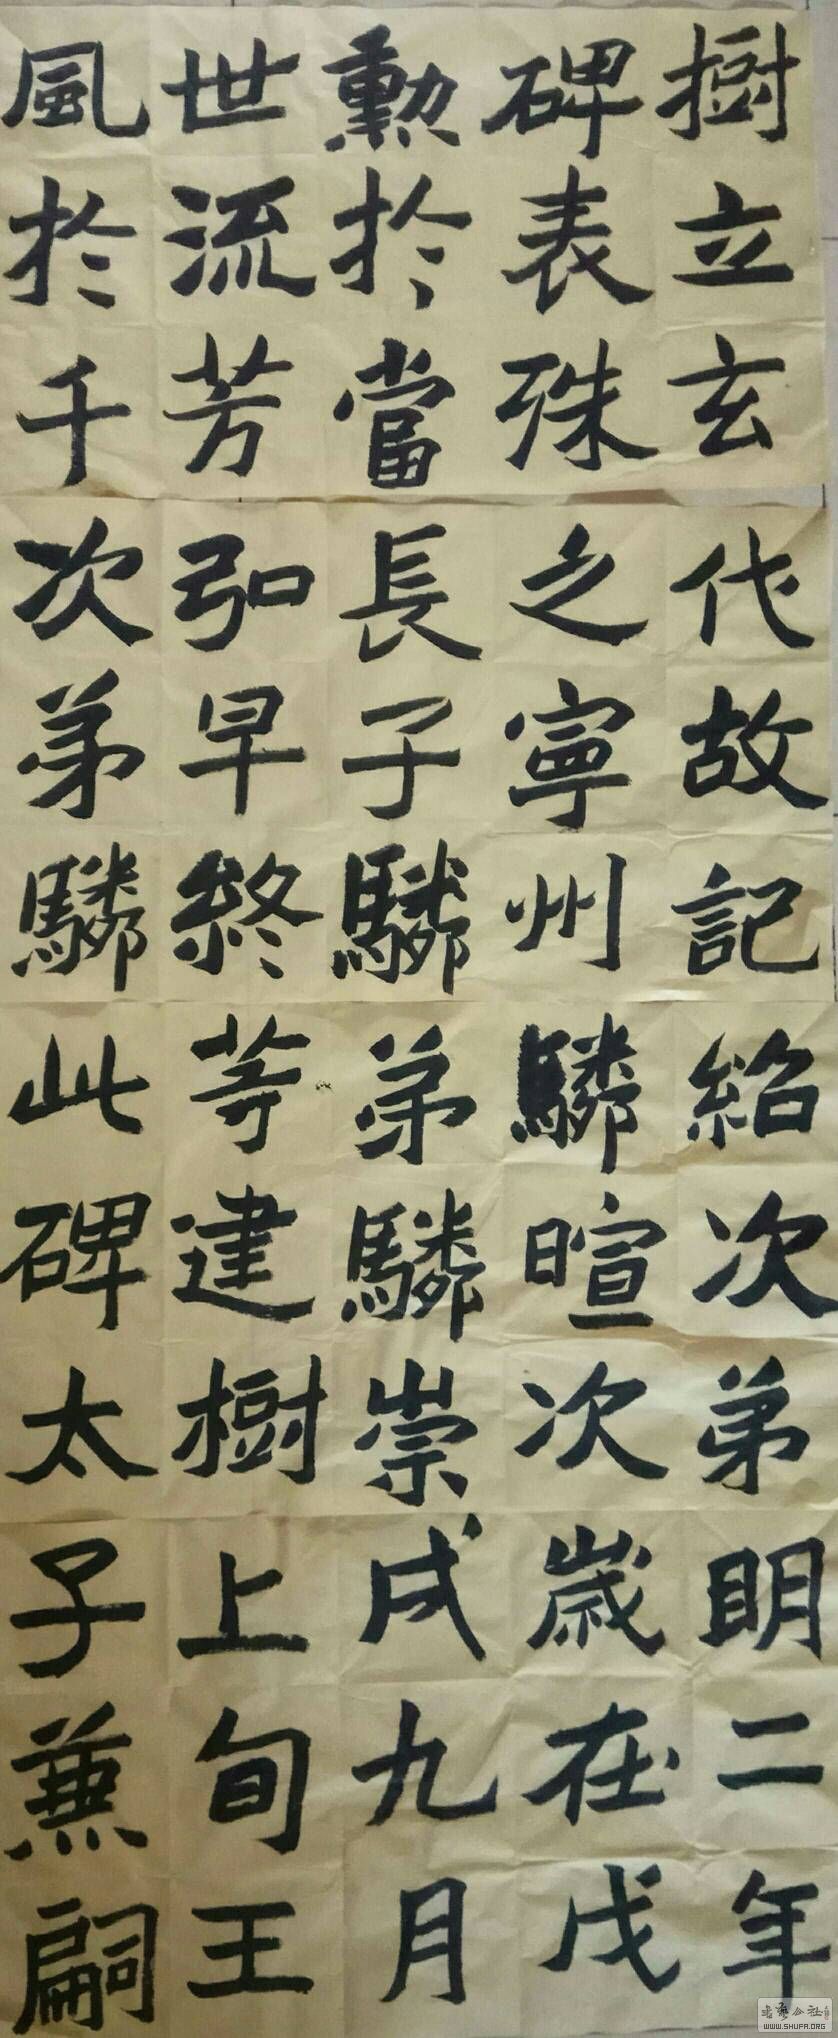 樹立玄
碑表殊
勲於當
世流芳
風於千
代故記
之寧州
長子驎
弘早終
次弟驎
紹次弟
驎暄次
弟驎崇
等建樹
此碑太
明二年
歲在戊
戌九月
上旬王
子兼嗣
WWW.SHUFA.ORG